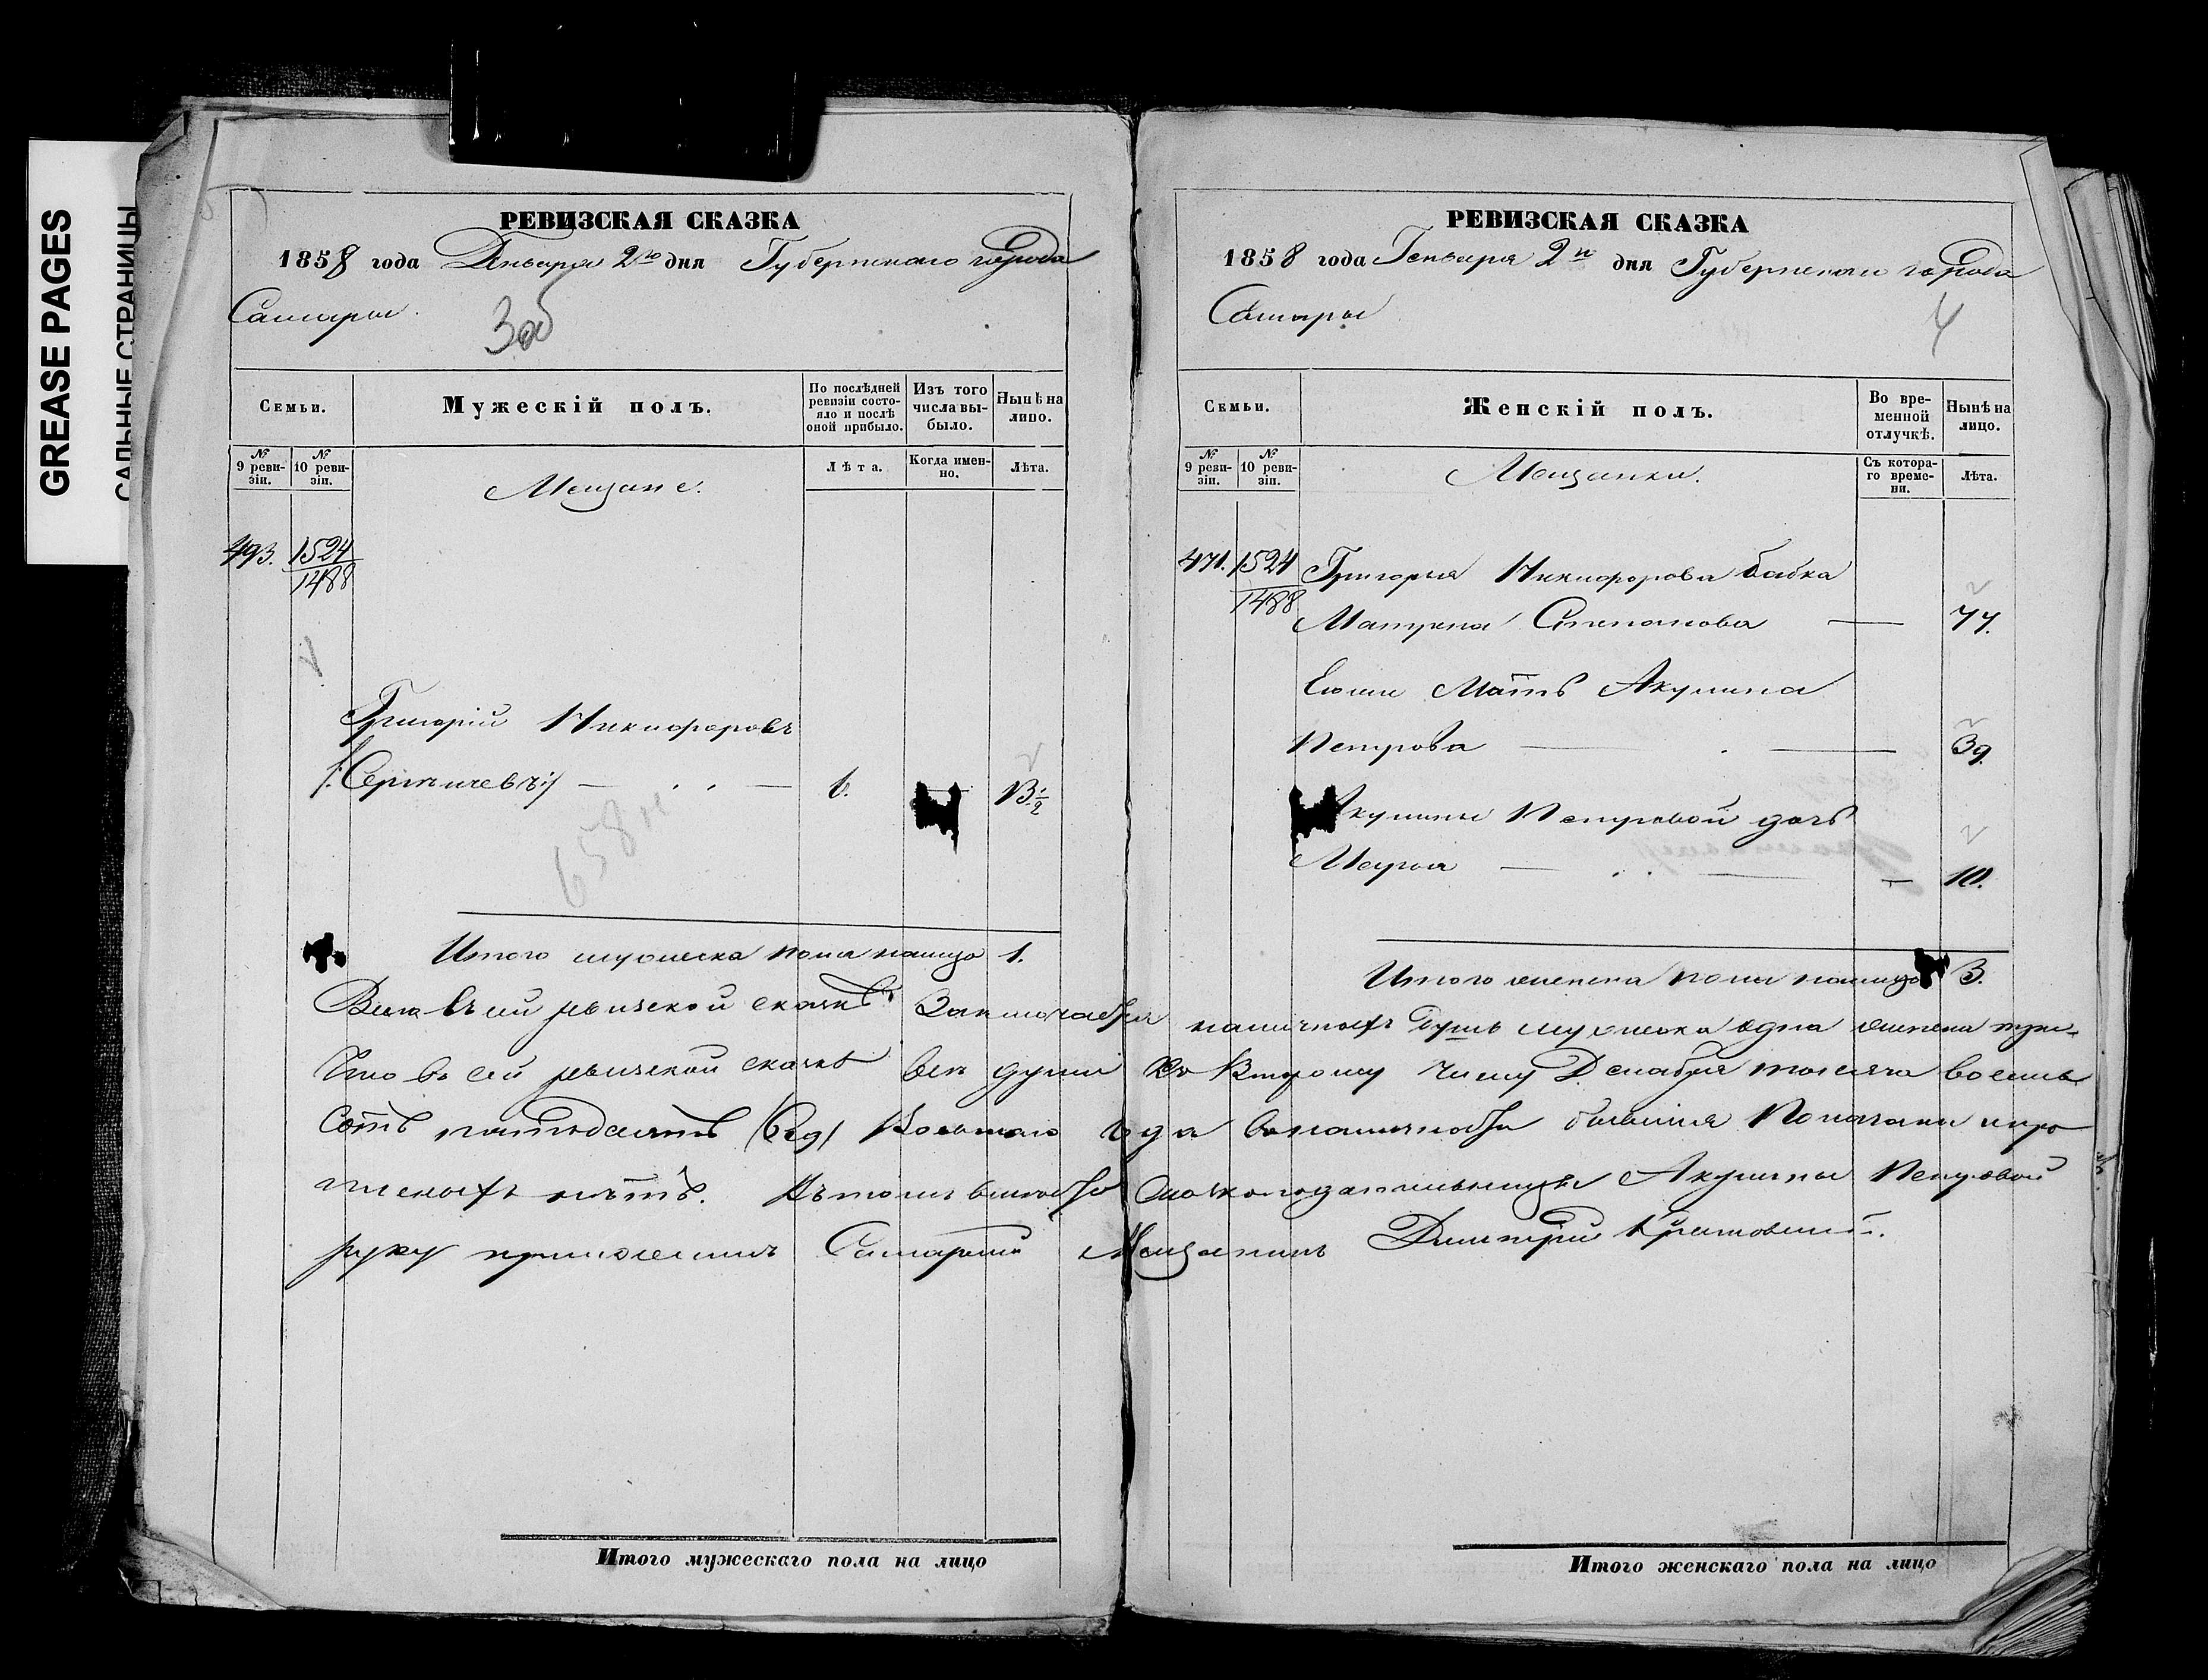 GREASE PAGES
САЛЬНЫЕ СТРАНИЦЫ
РЕВИЗСКАЯ СКАЗКА
1858 года Генваря 2го дня Губернскаго города
Самары
3об
Семьи.
Мужескій полъ.
По послѣдней ревизіи состояло и послѣ оной прибыло.
Изъ того числа выбыло.
Нынѣ на лицо.
№ 9 ревизіи.
№ 10 ревизіи.
Мещане.
Лѣта.
Когда именно.
Лѣта.
493. 1524
1488
Григорій Никифоровъ
/:Сергѣичевъ:/ — 6. 13½
658
Итого мужеска пола налицо 1.
РЕВИЗСКАЯ СКАЗКА
1858 года Генваря 2го дня Губернскаго города
Самары
4
Семьи.
Женскій полъ.
Во временной отлучкѣ.
Нынѣ на лицо.
№ 9 ревизіи.
№ 10 ревизіи.
Мещанки.
Съ котораго времени.
Лѣта.
471. 1524 Григорья Никифорова бабка
1488
Матрена Степанова — 77.
Его мать Акулина
Петрова — 39.
Акулины Петровой дочь
10.
Итого женска пола налицо 3.
Всего въ сей ревизской сказкѣ заключается наличныхъ душъ мужеска одна женска три.
Что въ сей ревизской сказкѣ все души ко второму числу Декабря тысяча восемь
сотъ пятьдесятъ года въ наличности бывшія показаны и про
писныхъ нѣтъ. Къ сей вместо сказкоподательницы Акулины Петровой
руку приложилъ Самарский Мещанинъ Дмитрій
Итого мужескаго пола на лицо
Итого женскаго пола на лицо